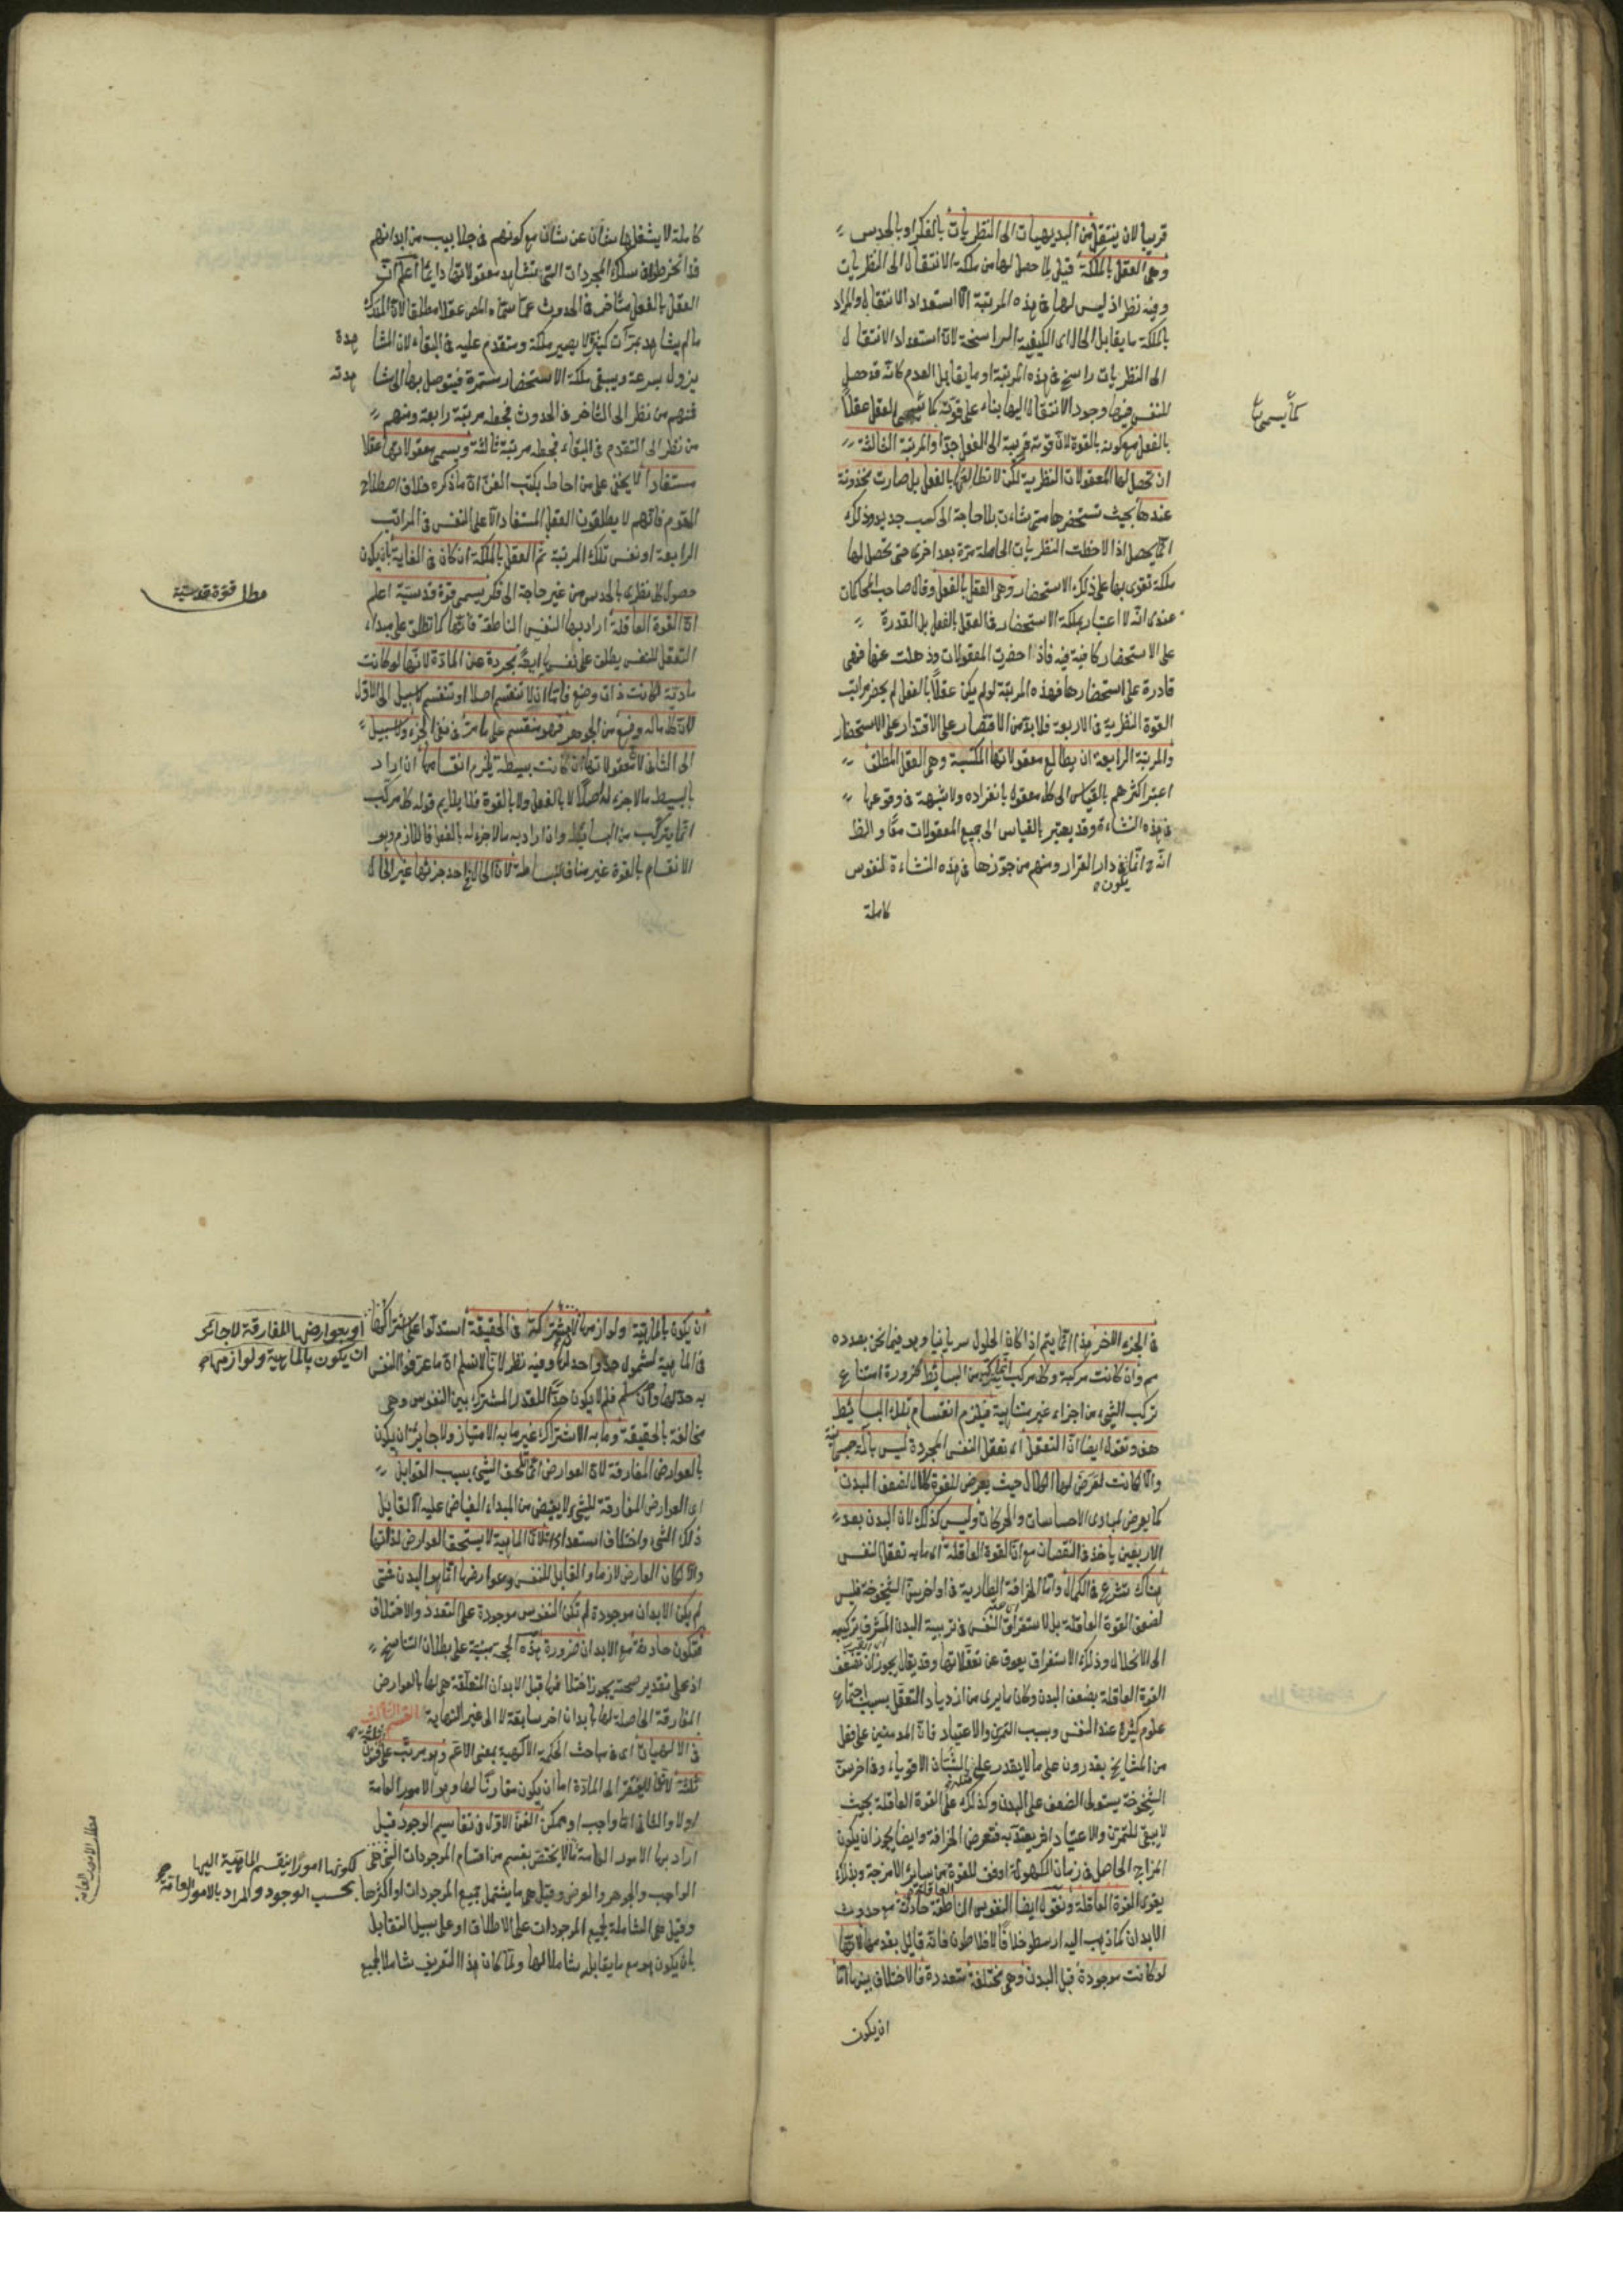 قريبا لان ينتقل من البديهيات الى النظريات بالفكر او بالحدس
وهى العقل بالملكة قيل لما حصل لها من ملكة الانتقال الى النظريات
وفيه نظر اذ ليس لها فى هذه المرتبة الا استعداد الانتقال والمراد
بالملكة ما يقابل الحال اى الكيفية الراسخة لان استعداد الانتقال
الى النظريات راسخ فى هذه المرتبة او ما يقابل العدم كانه قد حصل
للنفس فيها وجود الانتقال اليها بناء على قوته كما تسمى العقل عقلاً
كما يسمى
بالفعل مع كونه بالقوة لان قوته قريبة الى الفعل جدا والمرتبة الثالثة
ان تحصل لها المعقولات النظرية لكن لا تطالعها بالفعل بل صارت مخزونة
عندها بحيث تستحضرها متى شاءت بلا حاجة الى كسب جديد وذلك
انما يحصل اذا لاحظت النظريات الحاصلة مرة بعد اخرى حتى تحصل لها
ملكة تقوى بها على ذلك الاستحضار وهى العقل بالفعل وقال صاحب المحاكمات
عندى انه لا اعتبار بملكة الاستحضار فى العقل بالفعل بل القدرة
على الاستحضار كافية فيه فاذا احضرت المعقولات وذهلت عنها فهى
قادرة على استحضارها فهذه المرتبة لو لم يكن عقلاً بالفعل لم يحضر مراتب
القوة النظرية فى الاربعة فلا بد من الاقتصار على الاقتدار على الاستحضار
والمرتبة الرابعة ان يطالع معقولاتها المكتسبة وهى العقل المطلق
اعتبر اكثرهم بالقياس الى كل معقول بانفراده ولا شبهة فى وقوعها
فى هذه النشاءة وقد يعتبر بالقياس الى جميع المعقولات معًا والظ
انه ح انما يكون فى دار القرار ومنهم من جوزها فى هذه النشاءة لنفوس
كاملة
كاملة لا يشغلها شان عن شان مع كونهم فى جلابيب من ابدانهم
قد انخرطوا فى سلك المجردات التى تشاهد معقولاتها دايما اعلم ان
العقل بالفعل متأخر فى الحدوث عما سماه المص عقلا مطلقا لان المدرك
ما لم يشاهد مرات كثيرة لا يصير ملكة ومتقدم عليه فى البقاء لان المشاهدة
يزول بسرعة ويبقى ملكة الاستحضار مستمرة فيتوصل بها الى مشاهدته
فمنهم من نظر الى التأخر فى الحدوث فجعله مرتبة رابعة ومنهم
من نظر الى التقدم فى البقاء فجعله مرتبة ثالثة ويسمى معقولاتها عقلا
مستفادا لا يخفى على من احاط بكتب الفن ان ما ذكره خلاف اصطلاح
القوم فانهم لا يطلقون العقل المستفاد الا على النفس فى المراتب
الرابعة او نفس تلك المرتبة ثم العقل بالملكة ان كان فى الغاية بان يكون
حصول كل نظرى بالحدس من غير حاجة الى فكر يسمى قوة قدسية اعلم
مطل قوة قدسية
ان القوة العاقلة اراد بها النفس الناطقة فانها كما تطلق على مبداء
التعقل للنفس يطلق على نفسها ايضًا مجردة عن المادة لانها لو كانت
مادية لكانت ذات وضع فاما ان لا تنقسم اصلا او تنقسم لا سبيل الى الاول
لان كل ما له وضع من الجوهر فهو منقسم على ما مر فى نفى الجزء ولا سبيل
الى الثانى لان معقولاتها ان كانت بسيطة يلزم انقسامها ان اراد
بالبسيط ما لا جزء له اصلاً لا بالفعل ولا بالقوة فلا يلايم قوله كل مركب
انما يتركب من البسائط وان اراد به ما لا جزء له بالفعل فاللازم وهو
الانقسام بالقوة غير مناف لبساطته لان الحال فى احد جزئيها غير الحال
فى الجزء الاخر هذا انما يتم اذا كان الحلول سريانيا وهو فيما نحن بصدده
مم وان كانت مركبة وكل مركب انما يتركب من البسائط ضرورة امتناع
تركب الشئ من اجزاء غير متناهية فيلزم انقسام تلك البسائط
هف ونقول ايضا ان التعقل اى تعقل النفس المجردة ليس بآلة جسمانية
والا كانت لعرض لها الكلال حيث يعرض للقوة كلال لضعف البدن
كما يعرض لمبادى الاحساسات والحركات وليس كذلك لان البدن بعد
الاربعين ياخذ فى النقصان مع ان القوة العاقلة اى ما به تعقل النفس
هناك تشرع فى الكمال واما الخرافة الطارية فى اواخر سن الشيخوخة فليس
لضعف القوة العاقلة بل لاستغراق النفس فى تربية البدن المشرف تركيبه
الى الانحلال وذلك الاستغراق يعوق عن تعقلاتها وقد يقال يجوز ان تضعف
القوة العاقلة بضعف البدن وكان ما يرى من ازدياد التعقل بسبب اجتماع
علوم كثيرة عند النفس وبسبب التمرن والاعتياد فان المدمنين على فعل
من المشايخ يقدرون على ما لا يقدر عليه الشبان الاقوياء وفى اخر سن
الشيخوخة يستولى الضعف على البدن وكذلك على القوة العاقلة بحيث
لا يبقى للتمرن والاعتياد اثر يعتد به فتعرض الخرافة وايضا يجوز ان يكون
المزاج الحاصل فى زمان الكهولة اوفق للقوة العاقلة من سائر الامزجة وبذلك
يقوى القوة العاقلة ونقول ايضا النفوس الناطقة حادثة مع حدوث
الابدان كما ذهب اليه ارسطو خلافًا لافلاطون فانه قائل بقدمها لانها
لو كانت موجودة قبل البدن وهى مختلفة متعددة فالاختلاف بينها اما
ان يكون
ان يكون بالماهية ولوازمها لانها مشتركة فى الحقيقة استدلوا على اشتراكها
او بعوارضها المفارقة لا جائز
ان يكون بالماهية ولوازمها
فى الماهية لشمول حد واحد لها وفيه نظر لانا لا نسلم ان ما عرفوا النفس
به حد لها وان سلم فلم لا يكون حدًّا للقدر المشترك بين النفوس وهى
مخالفة بالحقيقة وما به الاشتراك غير ما به الامتياز ولا جائز ان يكون
بالعوارض المفارقة لان العوارض انما تلحق الشئ بسبب القوابل
اى العوارض المفارقة للشئ لا يفيض من المبداء الفياض عليه الا لقابل
ذلك الشئ واختلاف استعداداته لان الماهية لا يستحق العوارض لذاتها
والا لكان العارض لازما والقابل للنفس وعوارضها انما هو البدن فمتى
لم يكن الابدان موجودة لم تكن النفوس موجودة على التعدد والاختلاف
فتكون حادثة مع الابدان ضرورة هذه الحجة مبنية على بطلان التناسخ
اذ على تقدير صحته يجوز اختلافها قبل الابدان المتعلقة هى بها بالعوارض
المفارقة الحاصلة لها بابدان اخر سابقة لا الى غير النهاية القسم الثالث
فى الالهيات اى فى مباحث الحكمة الالهية بمعنى الاعم وهو مرتب على فنون
ثلثة لان ما لا يفتقر الى المادة اما ان يكون مقارنًا لها وهو الامور العامة
اولا والثانى اما واجب او ممكن الفن الاول فى تقاسيم الوجود قيل
اراد بها الامور العامة مما لا يختص بقسم من اقسام الموجودات التى هى
لكونها امورًا ينقسم الماهية اليها
بحسب الوجود والمراد بالامور العامة
مطل الامور العامة
الواجب والجوهر والعرض وقيل هى ما يشتمل جميع الموجودات او اكثرها
وقيل هى الشاملة لجميع الموجودات على الاطلاق او على سبيل التقابل
بان يكون هو مع ما يقابله شاملا لها ولما كان هذا التعريف شاملا لجميع